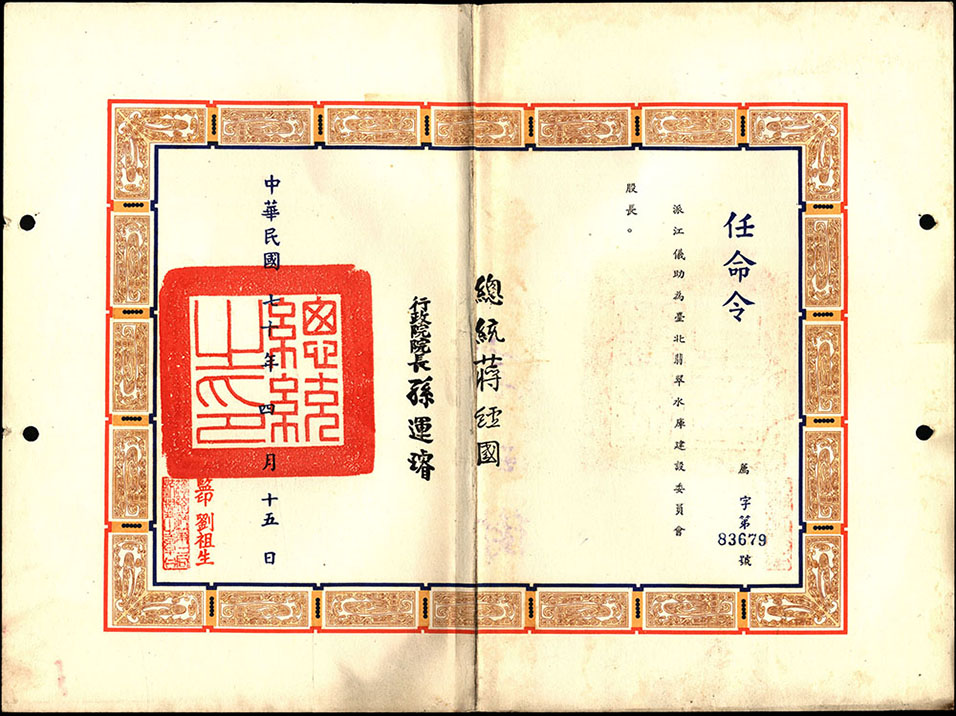 任命令
薦字第83679號
派江儀助為臺北翡翠水庫建設委員會
股長。
總統蔣經國
行政院院長孫運璿
中華民國七十年四月十五日
總統之印
監印劉祖生